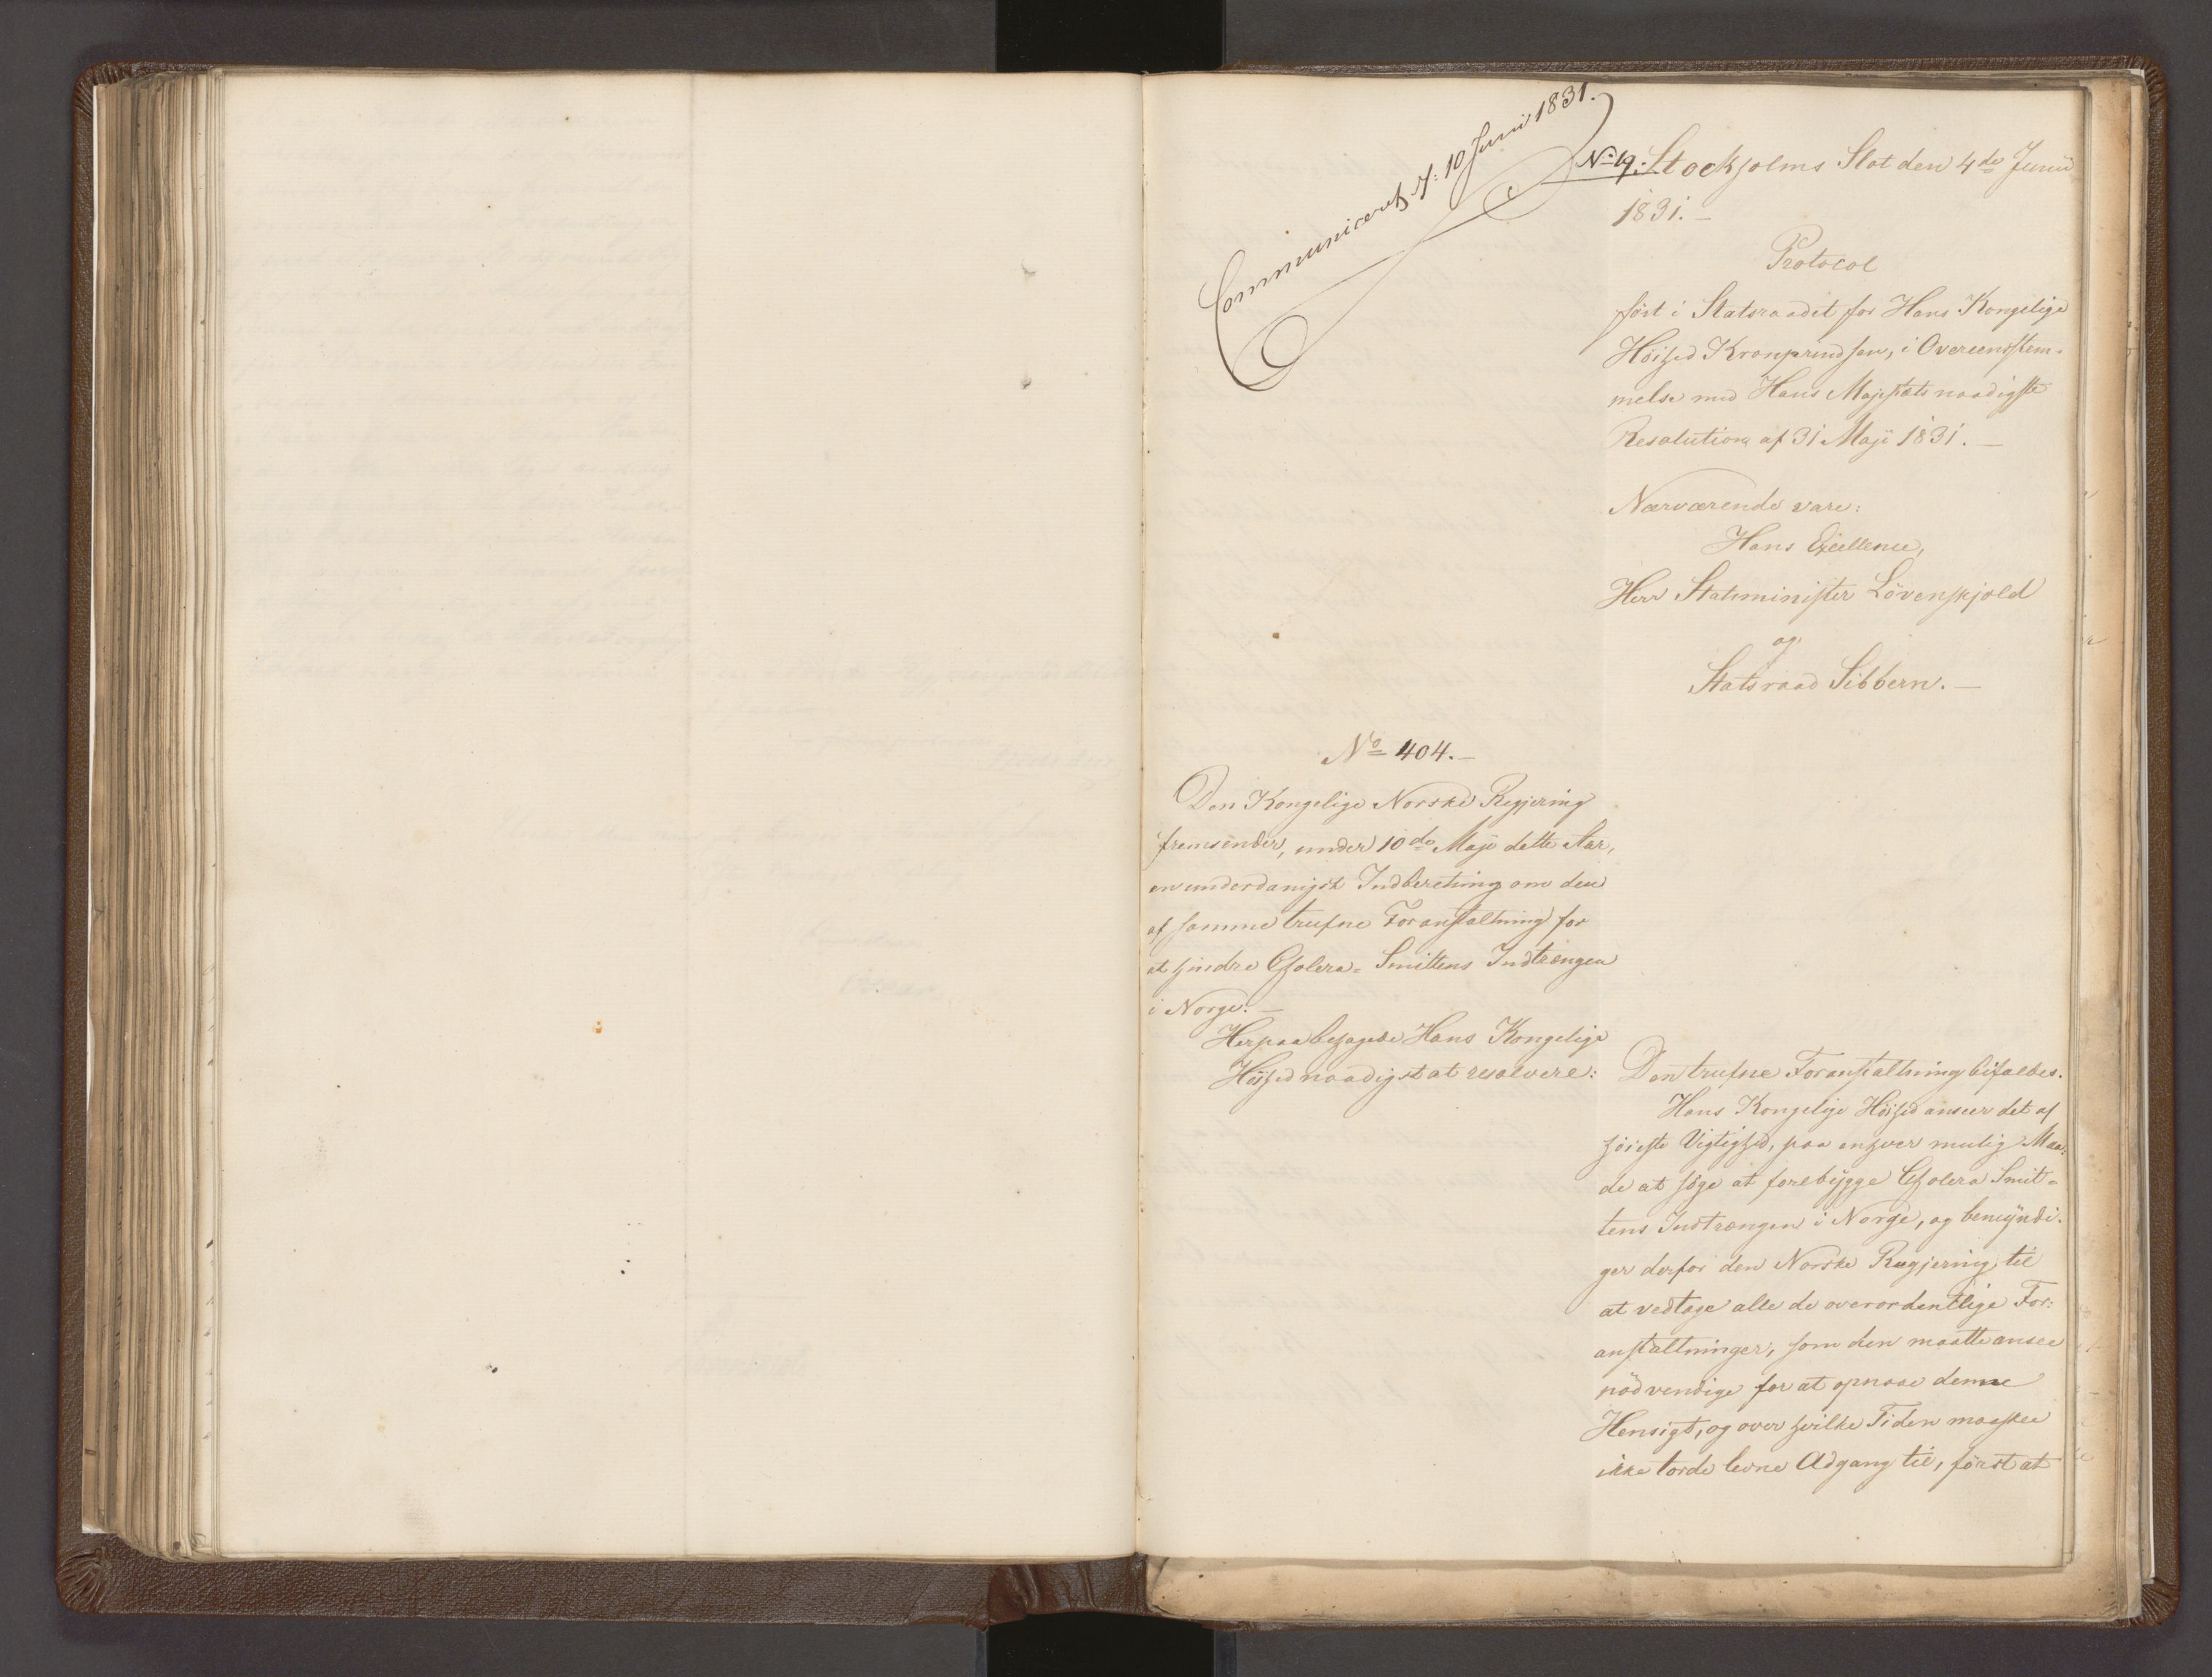 Communiceret d: 10 Juni 1831.
No 19. Stockholms Slot den 4de Junii
1831. —
Protocol
ført i Statsraadet for Hans Kongelige
Høihed Kronprindsen, i Overeensstem-
melse med Hans Majestæts naadigste
Resolution af 31 Maji 1831. —
Nærværende vare:
Hans Excellence,
Herr Statsminister Løvenskjold
og
Statsraad Sibbern. —
No 404. —
Den Kongelige Norske Regjering
fremsender, under 10de Maji dette Aar,
en underdanigst Indberetning om den
af samme trufne Foranstaltning for
at hindre Cholera-Smittens Indtrængen
i Norge. —
Herpaa behagede Hans Kongelige
Høihed naadigst at resolvere:
Den trufne Foranstaltning bifaldes.
Hans Kongelige Høihed anseer det af
høieste Vigtighed, paa enhver mulig Maa-
de at søge at forebygge Cholera Smit-
tens Indtrængen i Norge, og bemyndi-
ger derfor den Norske Regjering til
at vedtage alle de overordentlige For-
anstaltninger, som den maatte ansee
nødvendige for at opnaae denne
Hensigt, og over hvilke Tiden maaskee
ikke torde levne Adgang til, først at